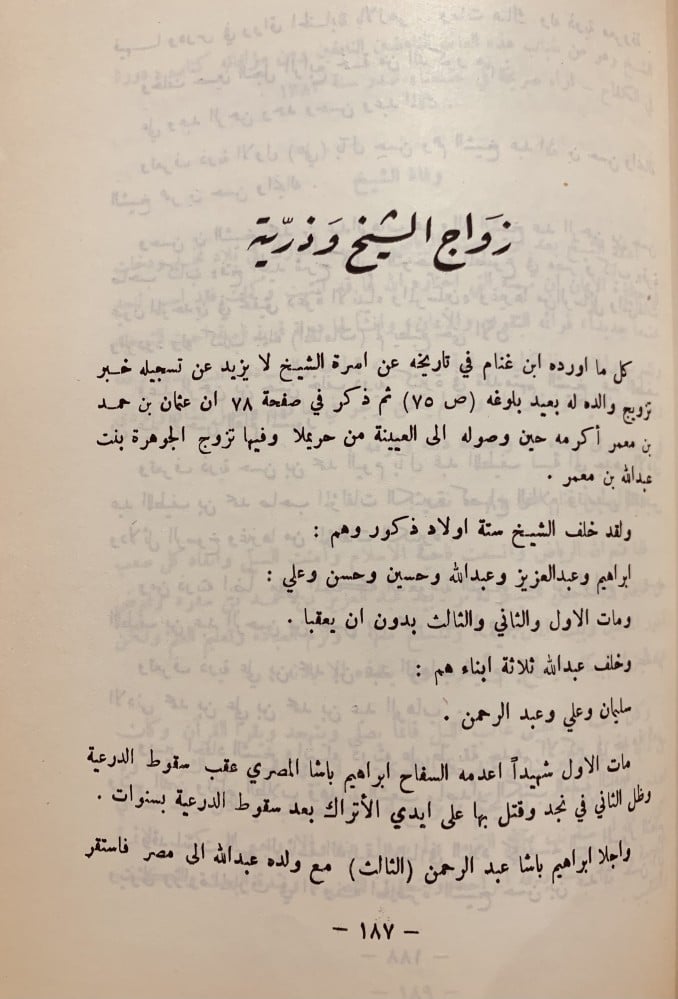 زواج الشيخ وذرية
كل ما اورده ابن غنام في تاريخه عن اسرة الشيخ لا يزيد عن تسجيله خبر
تزويج والده له بعيد بلوغه (ص ٧٥) ثم ذكر في صفحة ٧٨ ان عثمان بن حمد
بن معمر أكرمه حين وصوله الى العيينة من حريملا وفيها تزوج الجوهرة بنت
عبدالله بن معمر .
ولقد خلف الشيخ ستة اولاد ذكور وهم :
ابراهيم وعبدالعزيز وعبدالله وحسين وحسن وعلي :
ومات الاول والثاني والثالث بدون ان يعقبا .
وخلف عبدالله ثلاثة ابناء هم :
سليمان وعلي وعبد الرحمن .
مات الاول شهيداً اعدمه السفاح ابراهيم باشا المصري عقب سقوط الدرعية
وظل الثاني في نجد وقتل بها على ايدي الأتراك بعد سقوط الدرعية بسنوات .
واجلا ابراهيم باشا عبد الرحمن (الثالث) مع ولده عبدالله الى مصر فاستقر
– ١٨٧ –